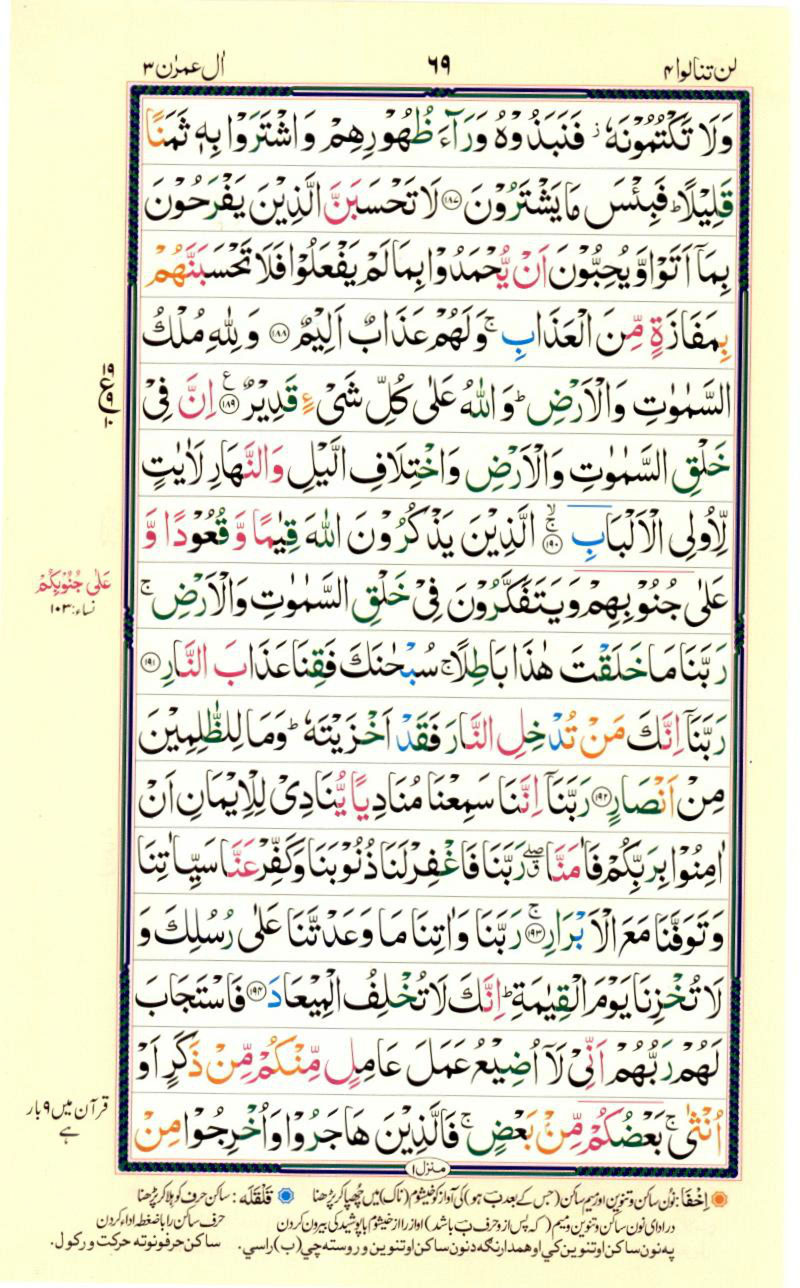 لن تنالوا ۴
۶۹
اٰل عمرٰن ۳
وَلَا تَكْتُمُوْنَهٗ ز فَنَبَذُوْهُ وَرَآءَ ظُهُوْرِهِمْ وَاشْتَرَوْا بِهٖ ثَمَنًا
قَلِيْلًا ؕ فَبِئْسَ مَا يَشْتَرُوْنَ ۱۸۷ لَا تَحْسَبَنَّ الَّذِيْنَ يَفْرَحُوْنَ
بِمَاۤ اَتَوْا وَّيُحِبُّوْنَ اَنْ يُّحْمَدُوْا بِمَا لَمْ يَفْعَلُوْا فَلَا تَحْسَبَنَّهُمْ
بِمَفَازَةٍ مِّنَ الْعَذَابِ ۚ وَلَهُمْ عَذَابٌ اَلِيْمٌ ۱۸۸ وَلِلّٰهِ مُلْكُ
السَّمٰوٰتِ وَالْاَرْضِ ؕ وَاللّٰهُ عَلٰى كُلِّ شَىْءٍ قَدِيْرٌ ۱۸۹ ع اِنَّ فِىْ
خَلْقِ السَّمٰوٰتِ وَالْاَرْضِ وَاخْتِلَافِ الَّيْلِ وَالنَّهَارِ لَاٰيٰتٍ
لِّاُولِى الْاَلْبَابِ ۱۹۰ ۙۚ الَّذِيْنَ يَذْكُرُوْنَ اللّٰهَ قِيٰمًا وَّقُعُوْدًا وَّ
عَلٰى جُنُوْبِهِمْ وَيَتَفَكَّرُوْنَ فِىْ خَلْقِ السَّمٰوٰتِ وَالْاَرْضِ ۚ
رَبَّنَا مَا خَلَقْتَ هٰذَا بَاطِلًا ۚ سُبْحٰنَكَ فَقِنَا عَذَابَ النَّارِ ۱۹۱
رَبَّنَاۤ اِنَّكَ مَنْ تُدْخِلِ النَّارَ فَقَدْ اَخْزَيْتَهٗ ؕ وَمَا لِلظّٰلِمِيْنَ
مِنْ اَنْصَارٍ ۱۹۲ رَبَّنَاۤ اِنَّنَا سَمِعْنَا مُنَادِيًا يُّنَادِىْ لِلْاِيْمَانِ اَنْ
اٰمِنُوْا بِرَبِّكُمْ فَاٰمَنَّا ۖق رَبَّنَا فَاغْفِرْ لَنَا ذُنُوْبَنَا وَكَفِّرْ عَنَّا سَيِّاٰتِنَا
وَتَوَفَّنَا مَعَ الْاَبْرَارِ ۱۹۳ ۚ رَبَّنَا وَاٰتِنَا مَا وَعَدْتَّنَا عَلٰى رُسُلِكَ وَ
لَا تُخْزِنَا يَوْمَ الْقِيٰمَةِ ؕ اِنَّكَ لَا تُخْلِفُ الْمِيْعَادَ ۱۹۴ فَاسْتَجَابَ
لَهُمْ رَبُّهُمْ اَنِّىْ لَاۤ اُضِيْعُ عَمَلَ عَامِلٍ مِّنْكُمْ مِّنْ ذَكَرٍ اَوْ
اُنْثٰى ۚ بَعْضُكُمْ مِّنْۢ بَعْضٍ ۚ فَالَّذِيْنَ هَاجَرُوْا وَاُخْرِجُوْا مِنْ
منزل ۱
ع
۱۹
۹
۱۰
عَلٰى جُنُوْبِكُمْ
نساء: ۱۰۳
قرآن میں ۹ بار
ہے
اِخفَا: نُون ساکن و تنوین اور میم ساکن (جس کے بعد ب ہو) کی آواز کو خیشوم (ناک) میں چُھپا کر پڑھنا
قَلْقَلَه: ساکن حرف کو ہلا کر پڑھنا
در ادای نون ساکن و تنوین و میم (که پس از و حرف ب باشد) او از را از خیشوم با پوشیدگی بیرون کردن
حرف ساکن را با ضغطه اداء کردن
په نون ساکن او تنوین کي او همدارنگه د نون ساکن او تنوین وروسته چي (ب) راسي.
ساکن حرفونو ته حرکت ورکول.